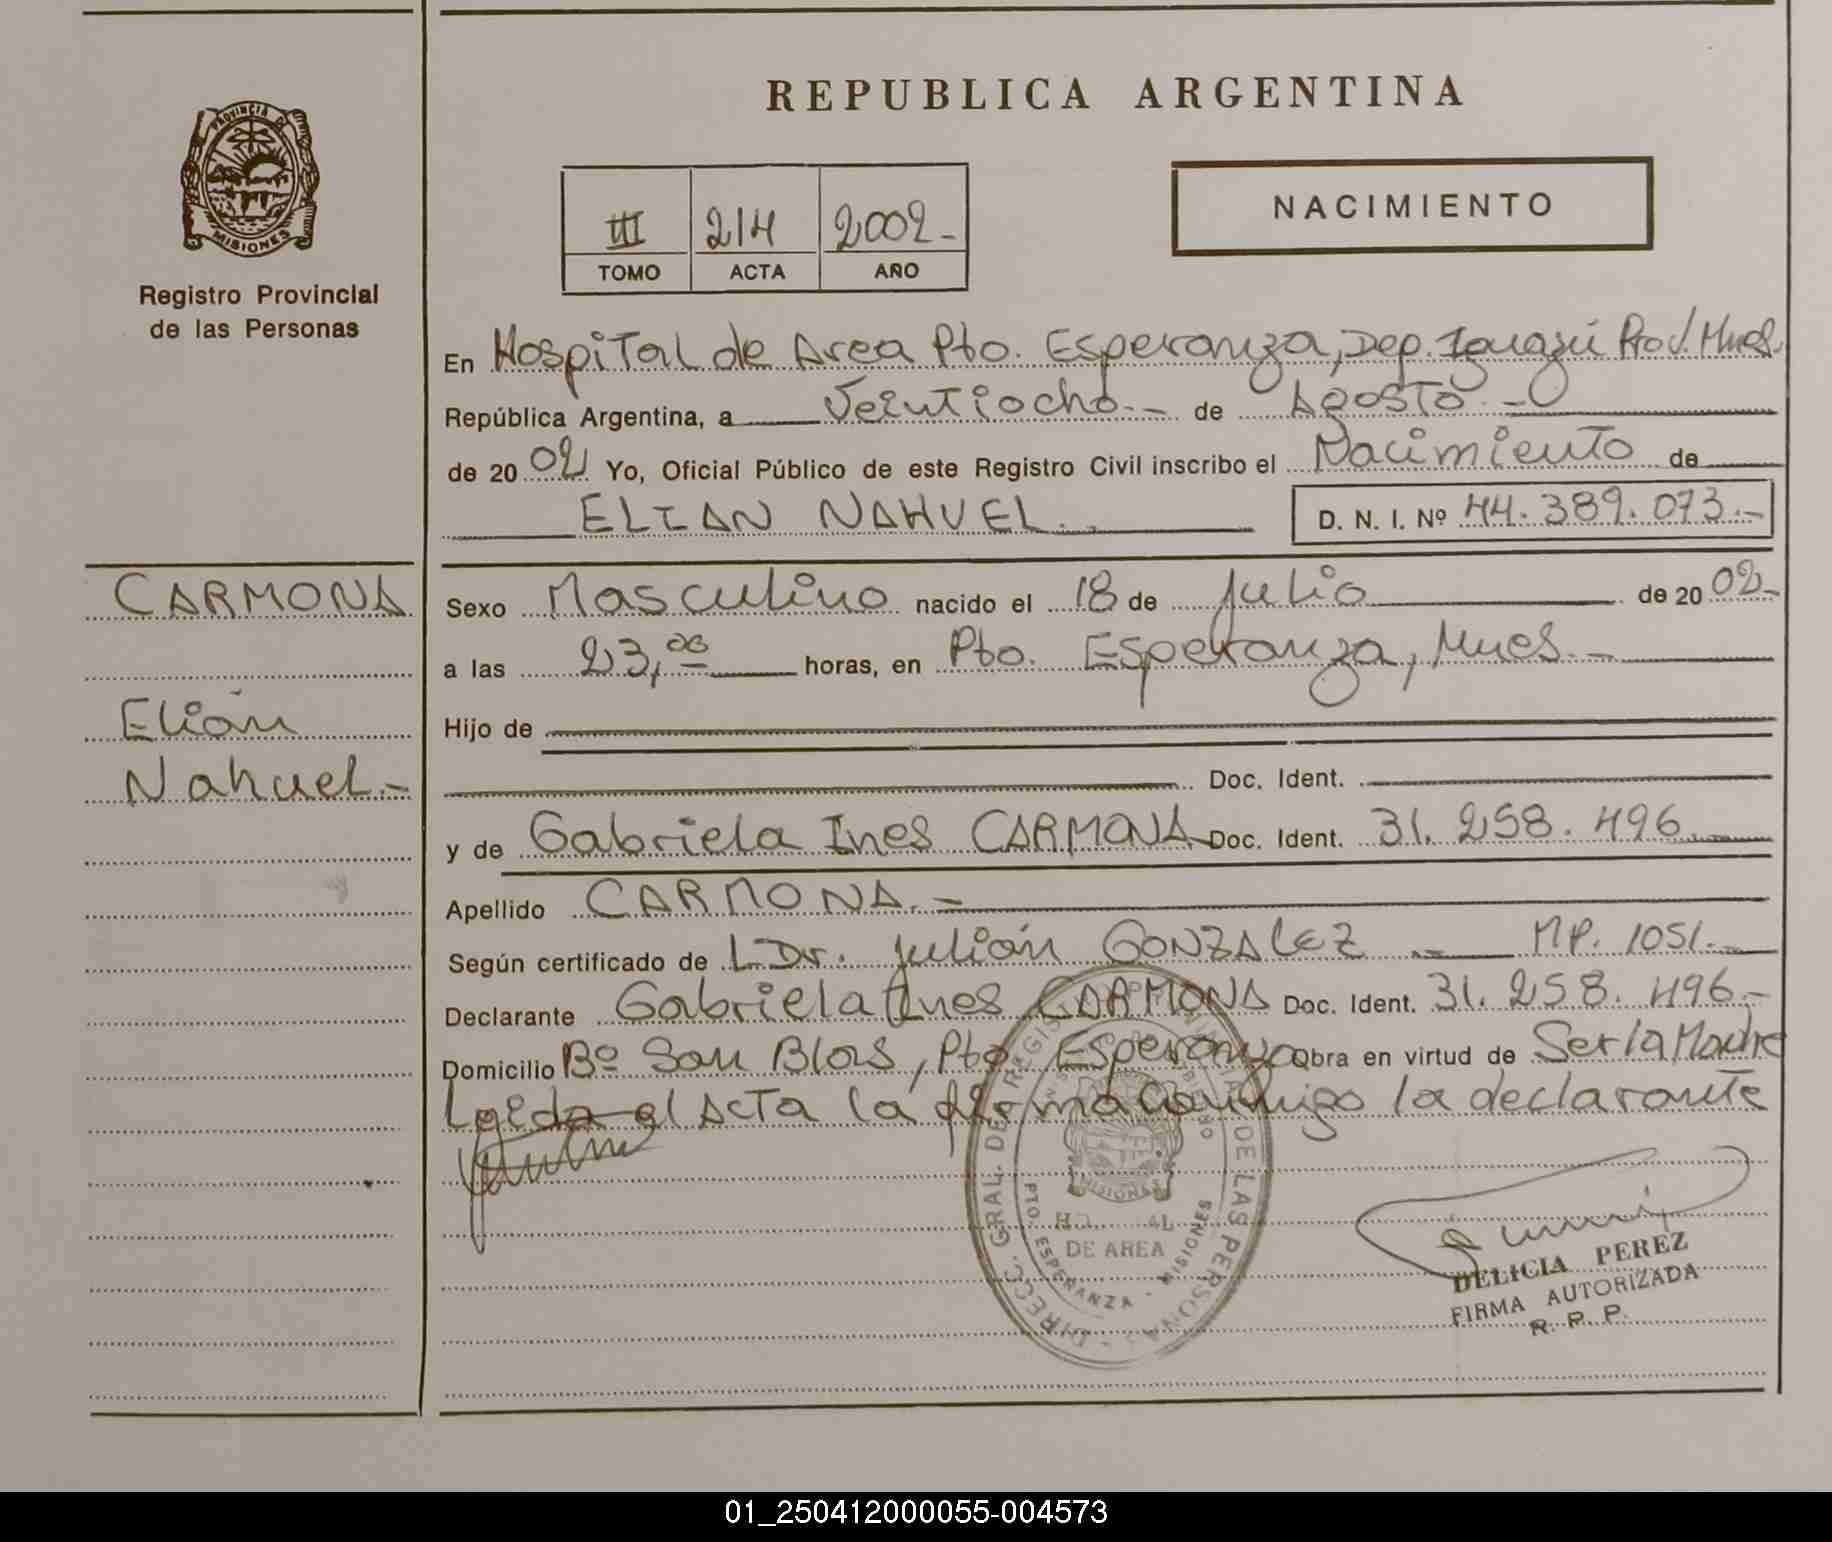 REPUBLICA ARGENTINA
PROVINCIA DE
MISIONES
Registro Provincial
de las Personas
III 214 2002-
TOMO ACTA AÑO
NACIMIENTO
En Hospital de Area Pto. Esperanza, Dep. Iguazú Prov. Mnes.
República Argentina, a Veintiocho.- de Agosto.-
de 20 02 Yo, Oficial Público de este Registro Civil inscribo el Nacimiento de
ELIAN NAHUEL.- D. N. I. Nº 44.389.073.-
CARMONA
Elián
Nahuel.-
Sexo Masculino nacido el 18 de Julio de 20 02-
a las 23,00 horas, en Pto. Esperanza, Mnes.-
Hijo de
Doc. Ident.
y de Gabriela Ines CARMONA Doc. Ident. 31.258.496
Apellido CARMONA.-
Según certificado de Dr. Julián GONZALEZ - MP. 1051.-
Declarante Gabriela Ines CARMONA Doc. Ident. 31.258.496.-
Domicilio Bº San Blas, Pto. Esperanza Obra en virtud de Ser la Madre
Leida el Acta la firma conmigo la declarante
DIREC. GRAL. DE REGIS DE LAS PERSONAS
MISIONES
DE AREA
PTO. ESPERANZA - MISIONES
DELICIA PEREZ
FIRMA AUTORIZADA
R. P. P.
01_250412000055-004573